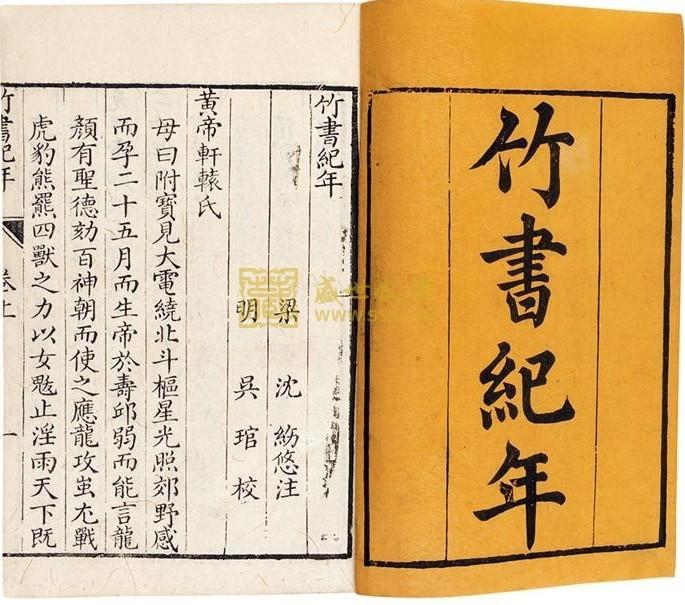 竹書紀年
竹書紀年
梁 沈約悠注
明 吳琯校
黃帝軒轅氏
母曰附寶見大電繞北斗樞星光照郊野感
而孕二十五月而生帝於壽邱弱而能言龍
顏有聖德劾百神朝而使之應龍攻蚩尤戰
虎豹熊羆四獸之力以女魃止淫雨天下既
竹書紀年
卷上
一